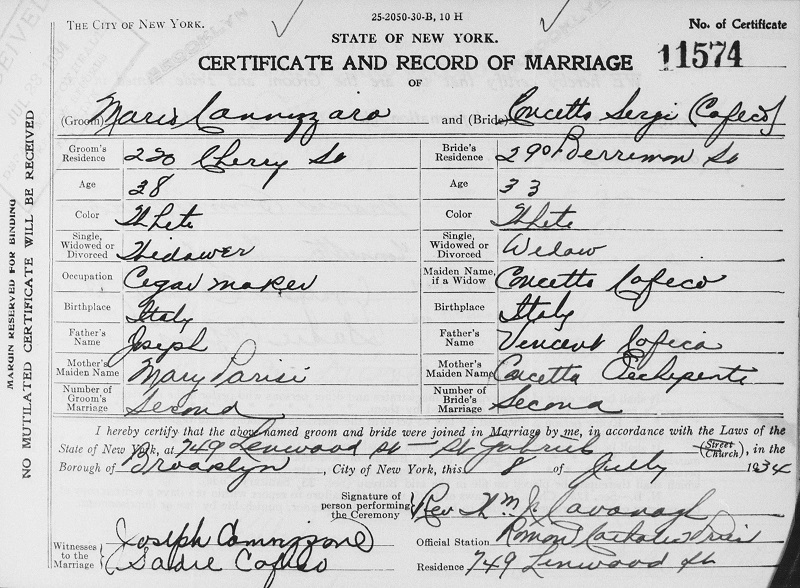 25-2050-30-B, 10 H
THE CITY OF NEW YORK.
No. of Certificate
STATE OF NEW YORK.
11574
CERTIFICATE AND RECORD OF MARRIAGE
OF
(Groom) Mario Cannizzaro and (Bride) Concetta Sergi (Cafeco)
Groom's Residence 220 Cherry St Bride's Residence 290 Berriman St
Age 38 Age 33
Color White Color White
Single, Widowed or Divorced Widower Single, Widowed or Divorced Widow
Occupation Cegar maker Maiden Name, if a Widow Concetta Cafeco
Birthplace Italy Birthplace Italy
Father's Name Joseph Father's Name Vincent
Mother's Maiden Name Mary Parisi Mother's Maiden Name Concetta
Number of Groom's Marriage Second Number of Bride's Marriage Second
I hereby certify that the above named groom and bride were joined in Marriage by me, in accordance with the Laws of the
State of New York, at 749 Linwood St - St Gabriels (Street Church), in the
Borough of Brooklyn, City of New York, this 8 of July 1934
Signature of person performing the Ceremony Rev Wm J Cavanagh
Official Station Roman Catholic Priest
Witnesses to the Marriage Joseph Sadie Cafeco
Residence 749 Linwood St
MARGIN RESERVED FOR BINDING
NO MUTILATED CERTIFICATE WILL BE RECEIVED
BROOKLYN